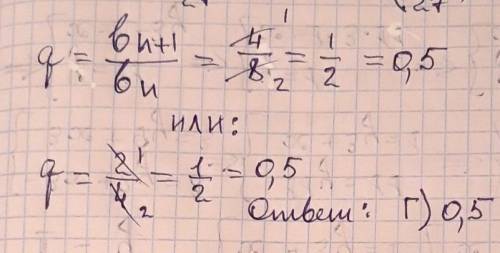 q = bn+1/bn = 4/8 1 2 = 1/2 = 0,5
или:
q = 2/4 1 2 = 1/2 = 0,5
Ответ: Г) 0,5